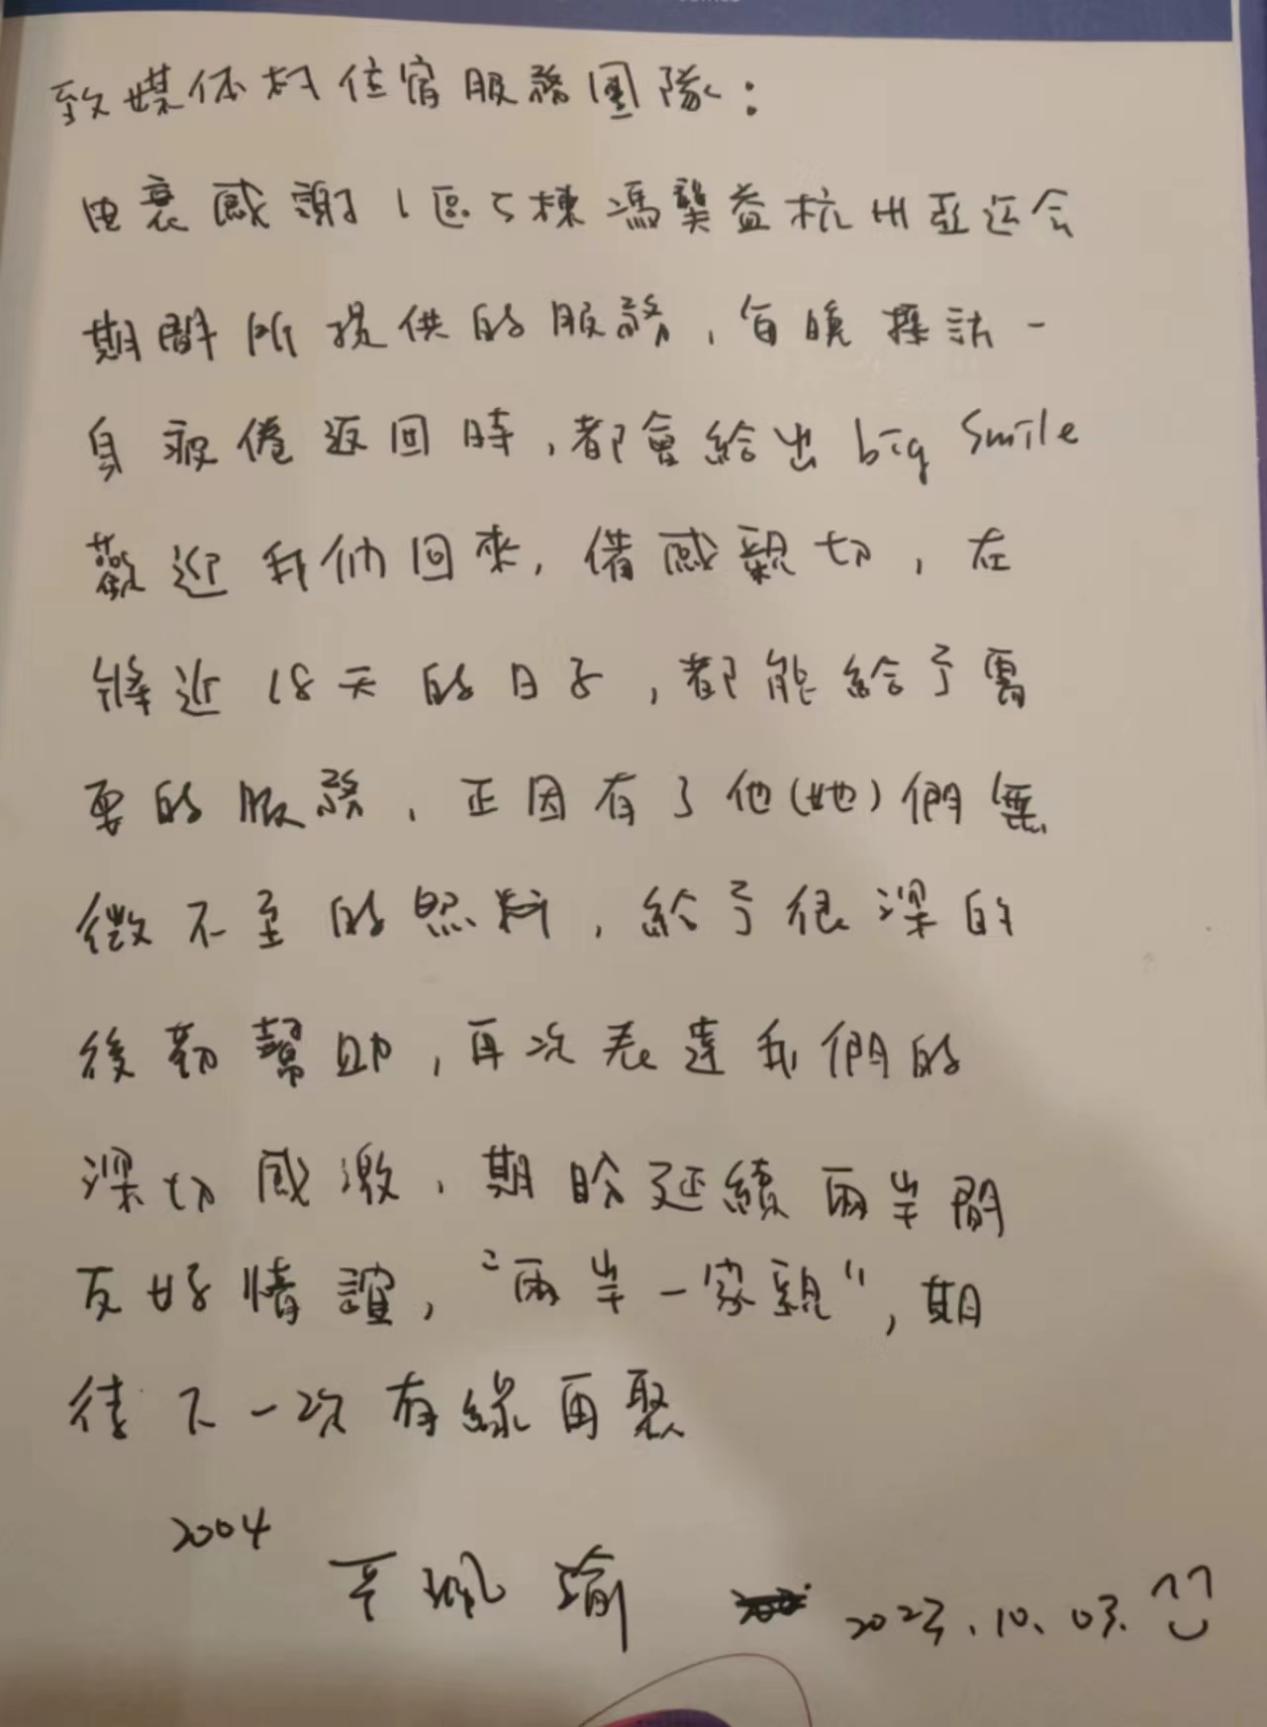 致媒体村住宿服務團隊：
由衷感謝1區5棟馮龔益杭州亞运会
期間所提供的服務，每晚採訪一
身疲倦返回時，都會給出 big Smile
歡迎我們回來，備感親切，在
將近18天的日子，都能給予需
要的服務，正因有了他(她)們無
微不至的照料，給予很深的
後勤幫助，再次表達我們的
深切感激，期盼延續兩岸間
友好情誼，“兩岸一家親”，期
待下一次有緣再聚
2004
辛珮瑜
2023.10.03.